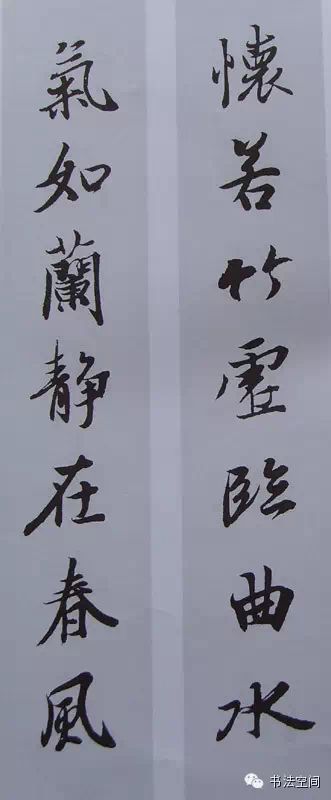 懷若竹虛臨曲水
氣如蘭静在春風
书法空间